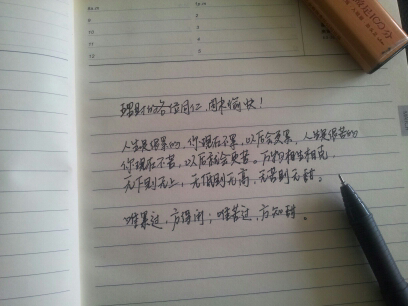 理财的各位同仁，周末愉快！
人生是很累的，你现在不累，以后会更累，人生是很苦的
你现在不苦，以后就会更苦。万物相生相克，
无下则无上，无低则无高，无苦则无甜。
唯累过，方得闲；唯苦过，方知甜。